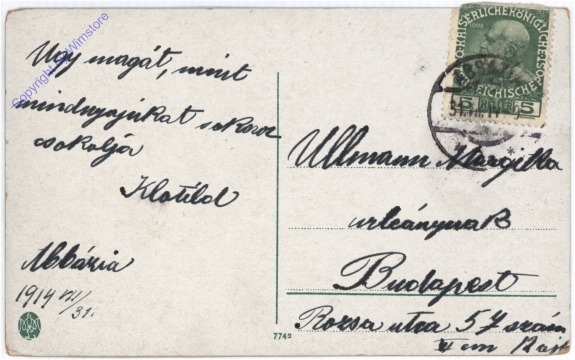 Copyright by Wimstore
Ugy magát, mint
mindnyájukat sokszor
csokolja
Klotild
Abbázia
1914 VII/31.
7742
K.K. OESTERREICHISCHE POST
KAISERLICHE KÖNIGLICHE
1908
5 5
31.VII.14
Ullmann Margitka
urleánynak
Budapest
Rozsa utca 57 szám